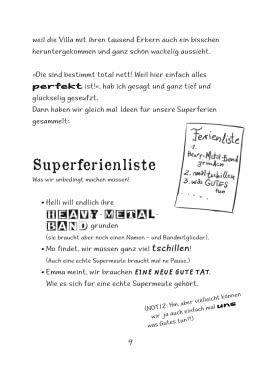 weil die Villa mit ihren tausend Erkern auch ein bisschen
heruntergekommen und ganz schön wackelig aussieht.
»Die sind bestimmt total nett! Weil hier einfach alles
perfekt ist!«, hab ich gesagt und ganz tief und
glückselig geseufzt.
Dann haben wir gleich mal Ideen für unsere Superferien
gesammelt:
Ferienliste
1.
Heavy-Metal-Band
gründen
2. mal tschillen
3. was GUTES
tun
.....
Superferienliste
Was wir unbedingt machen müssen!
• Helli will endlich ihre
HEAVY-METAL-
BAND gründen
(sie braucht aber noch einen Namen – und Bandmitglieder).
• Mo findet, wir müssen ganz viel tschillen!
(Auch eine echte Supermeute braucht mal ne Pause.)
• Emma meint, wir brauchen EINE NEUE GUTE TAT.
Wie es sich für eine echte Supermeute gehört.
(NOTIZ: Hm, aber vielleicht können
wir ja auch einfach mal uns
was Gutes tun?!)
9